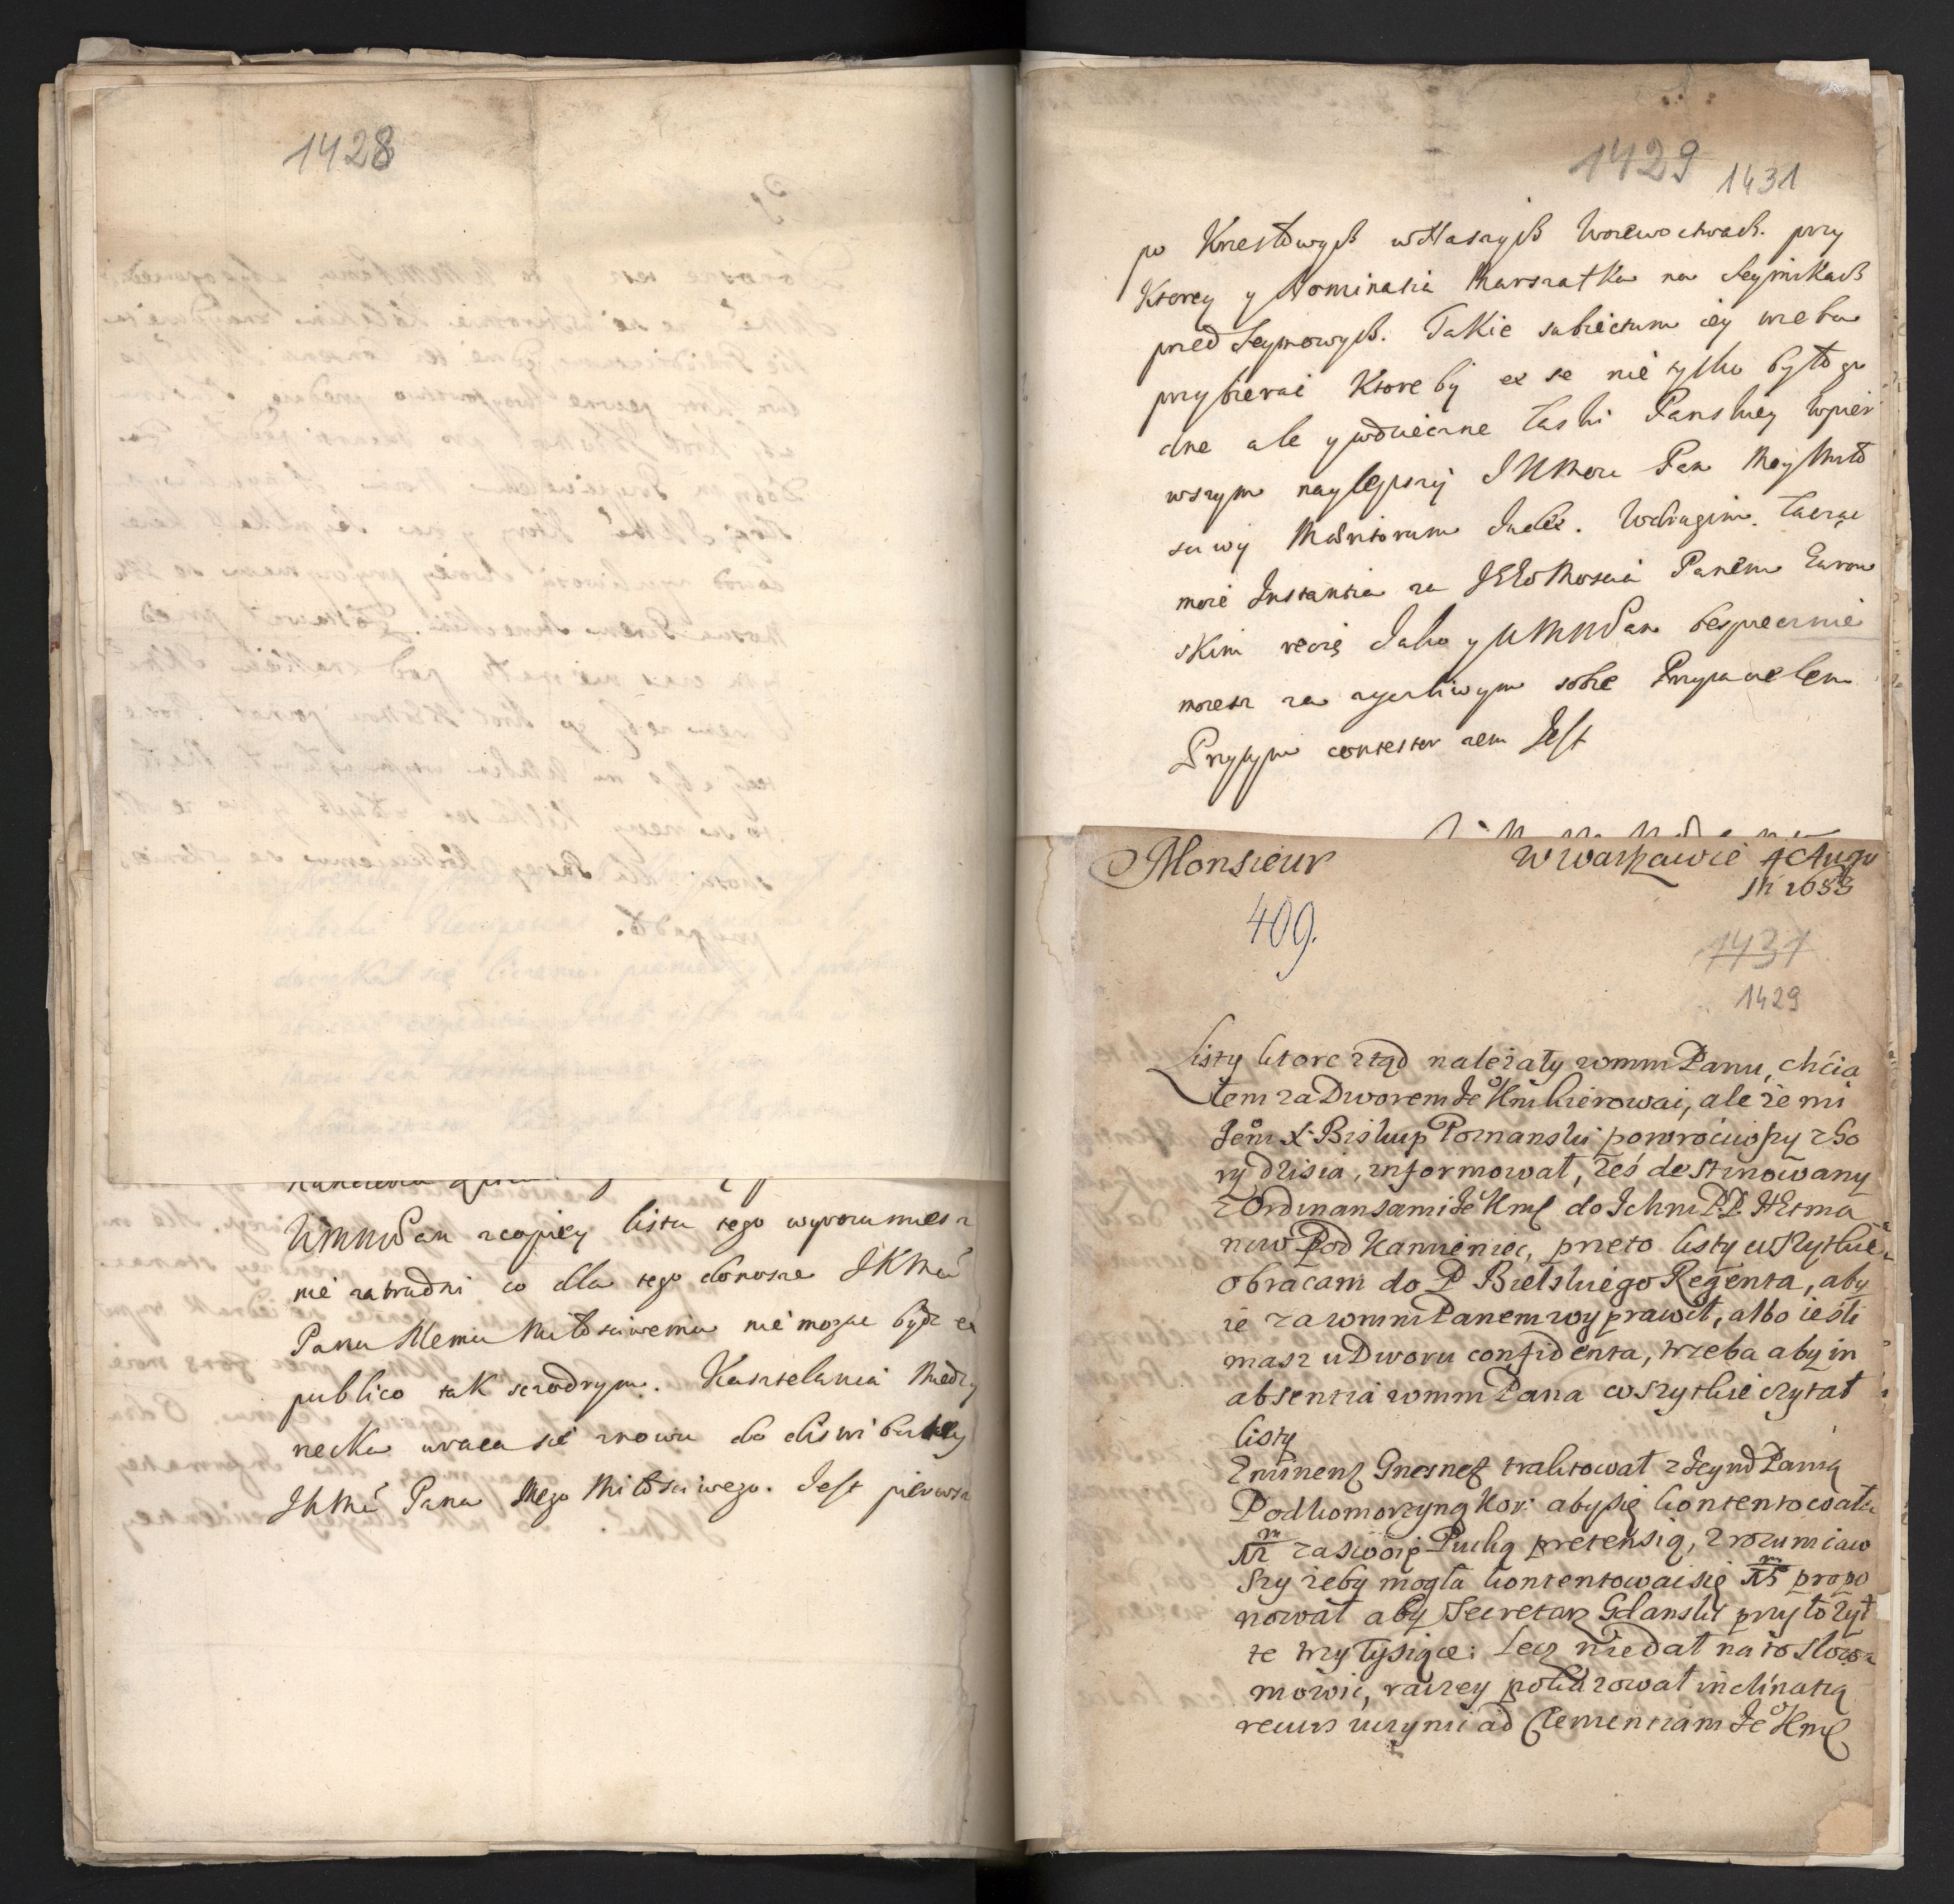 1428
WMMPan z copiey listu tego wyrozumiesz
nie zatrudni co dla tego donoszę JKMci
Panu Memu Miłosciwemu nie mogąc bydz ex
publico tak sczodrym. Kasztelania Miedzy
recka wraca się znowu do distributey
JKMci Pana Mego Miłosciwego. Jest pierwsza
1429 1431
po Krzesłowych w Naszych Woiewoctwach. przy
Ktorey y Nominatia Marszałka na Seymikach
przed Seymowych. Takie subiectum iey trzeba
przybierać Ktore by ex se nie tylko było go
dne ale y wdzieczne Łaski Panskiey w pier
wszym naylepszy JKMosc Pan Moy Miło
sciwy Meritorum Judex. W drugim łącząc
moię Instantia za JEśoMoscią Panem
skim ręczę Jako y WMMPan bespiecznie
mozesz za zyczliwym sobie Przyiacielem
Przytym contestor zem Jest
Monsieur W Warszawie 4 Augu
sti 1688
409.
1431
1429
Listy ktore ztąd należały wmm Panu, chcia
łem za Dworem Je Kmi kierować, ale że mi
Jem X. Biskup Poznanski powrociwszy cho
ry dzisia, informował, żeś destinowany
z Ordinansami Je Kmci do Ichm P.P. Hetma
nów Pod Kamieniec, przeto listy wszytkie
obracam do P Bielskiego Regenta, aby
ie za wmm Panem wyprawił, albo ieśli
masz u Dworu confidenta, trzeba aby in
absentia wmm Pana wszytkie czytał
listy
Eminens Gnesnens traktował z Jeymd Panią
Podkomorzyną Kor: aby się kontentowała
za swoię Pucką pretensią, zrozumiaw
szy żeby mogła kontentować się propo
nował aby Secretarz Gdanski przyłożył
te trzy tysiące: Lecz nie dał na to słowa
mowić, raczey pokazował inclinatią
recurs uczynić ad Clementiam Je Kmci